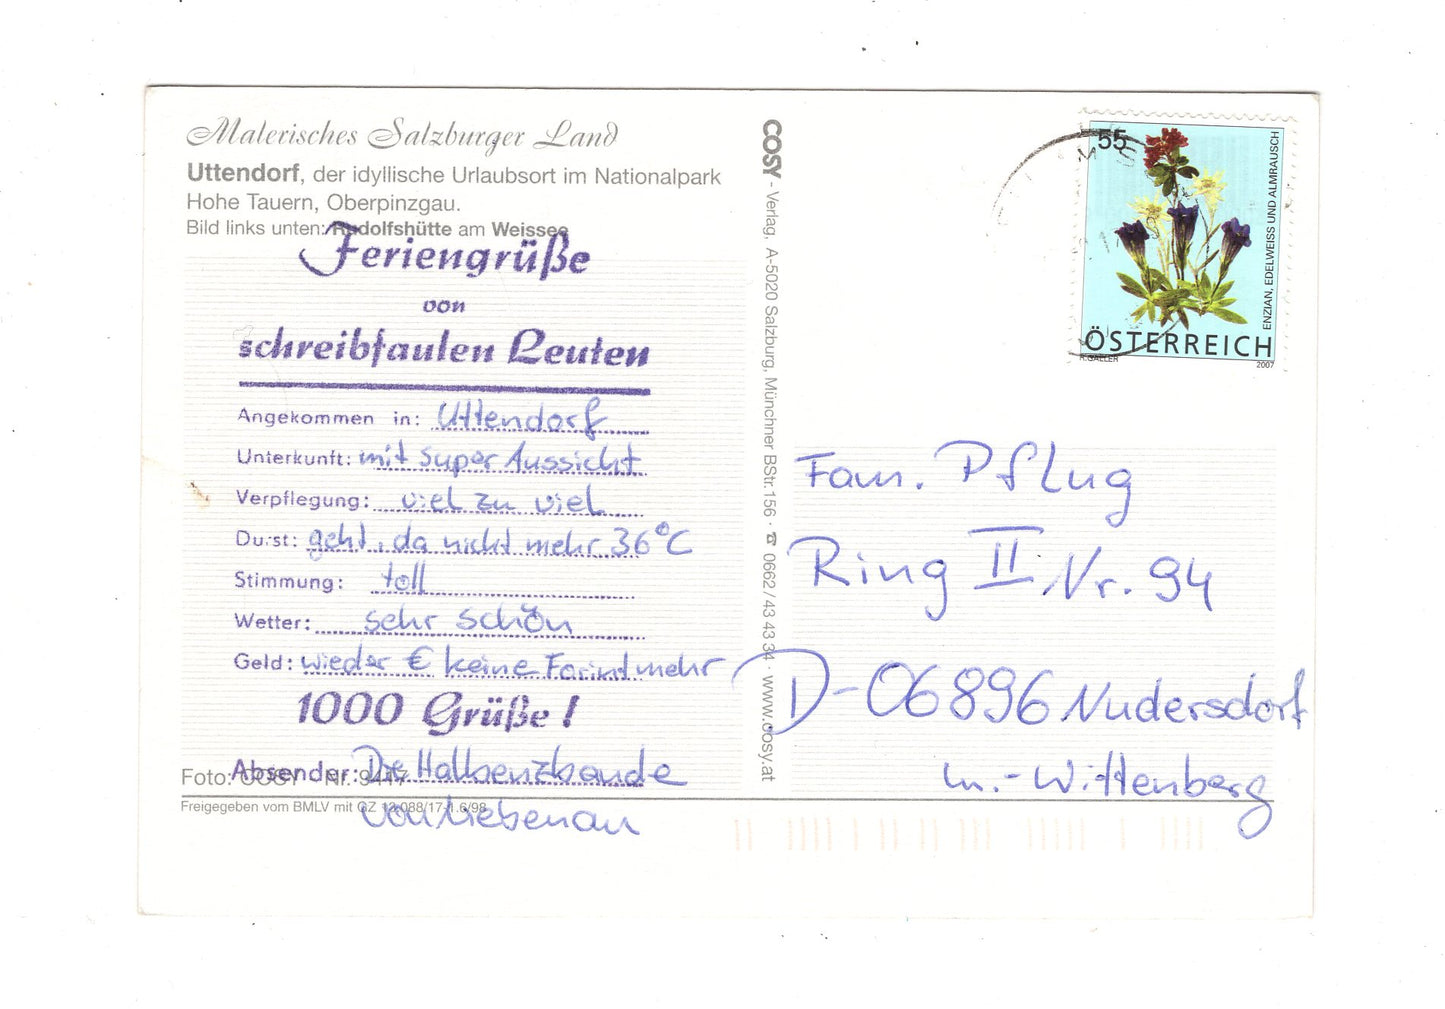 Malerisches Salzburger Land
Uttendorf, der idyllische Urlaubsort im Nationalpark
Hohe Tauern, Oberpinzgau.
Bild links unten: Rudolfshütte am Weissee
Feriengrüße
von
schreibfaulen Leuten
Angekommen in: Uttendorf
Unterkunft: mit super Aussicht
Verpflegung: viel zu viel
Durst: geht, da nicht mehr 36°C
Stimmung: toll
Wetter: sehr schön
Geld: wieder € keine Forint mehr
1000 Grüße!
Absender: Die Halbenzbande
von Liebenau
Foto: COSY Nr. 9447
Freigegeben vom BMLV mit GZ 13.088/17-1.6/98
COSY - Verlag, A-5020 Salzburg, Münchner BStr. 156 · ☎ 0662/43 43 34 · www.cosy.at
55
ENZIAN, EDELWEISS UND ALMRAUSCH
ÖSTERREICH
R. GALLER
2007
Fam. Pflug
Ring II Nr. 94
D-06896 Nudersdorf
b. Wittenberg